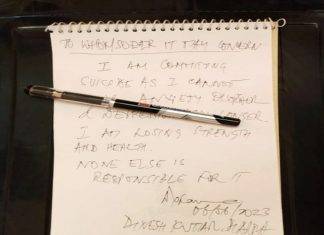 TO WHOM/SOEVER IT MAY CONCERN
I AM COMMITING
SUICIDE AS I CANNOT
ANXIETY
& DEPRESSION
I AM LOSING STRENGTH
AND HEALTH.
NONE ELSE IS
RESPONSIBLE FOR IT
06/06/2023